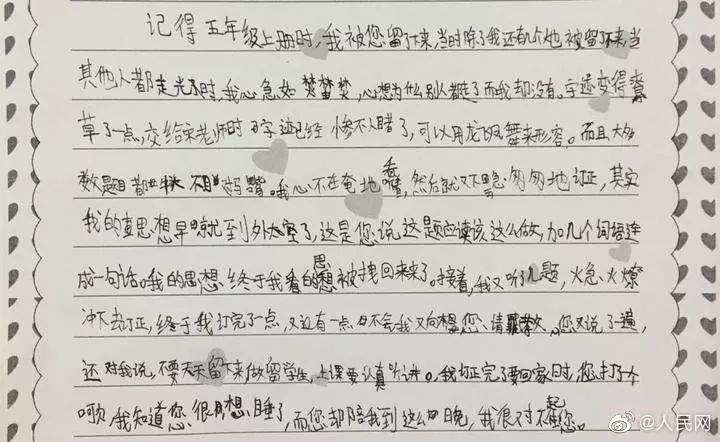 记得五年级上册时,我被您留了下来,当时除了我还有几个也被留了下来,当
其他人都走光了时,我心急如焚,心想为什么别人都走了而我却没有。字迹变得潦
草了一点,交给宋老师时字迹已经惨不人睹了,可以用龙飞凤舞来形容。而且大多
数题目都。我心不在奄地看,然后就又匆匆地订正,其实
我的真思想早就到外太空了,这是您说这题应该这么做,加几个词语连
成一句话。我的思想终于我的思想被拽回来了。接着,我又听了几题,火急火燎
冲下去订正,终于我订完了一点,又近有一点不会我又向您请教,您又说了一遍,
还对我说,不要天天留下来,做留学生,上课要认真听讲。我订正完了要回家时,您打了个
哈欠,我知道您很想睡了,而您却陪我到这么晚,我很对不起您。
@人民网